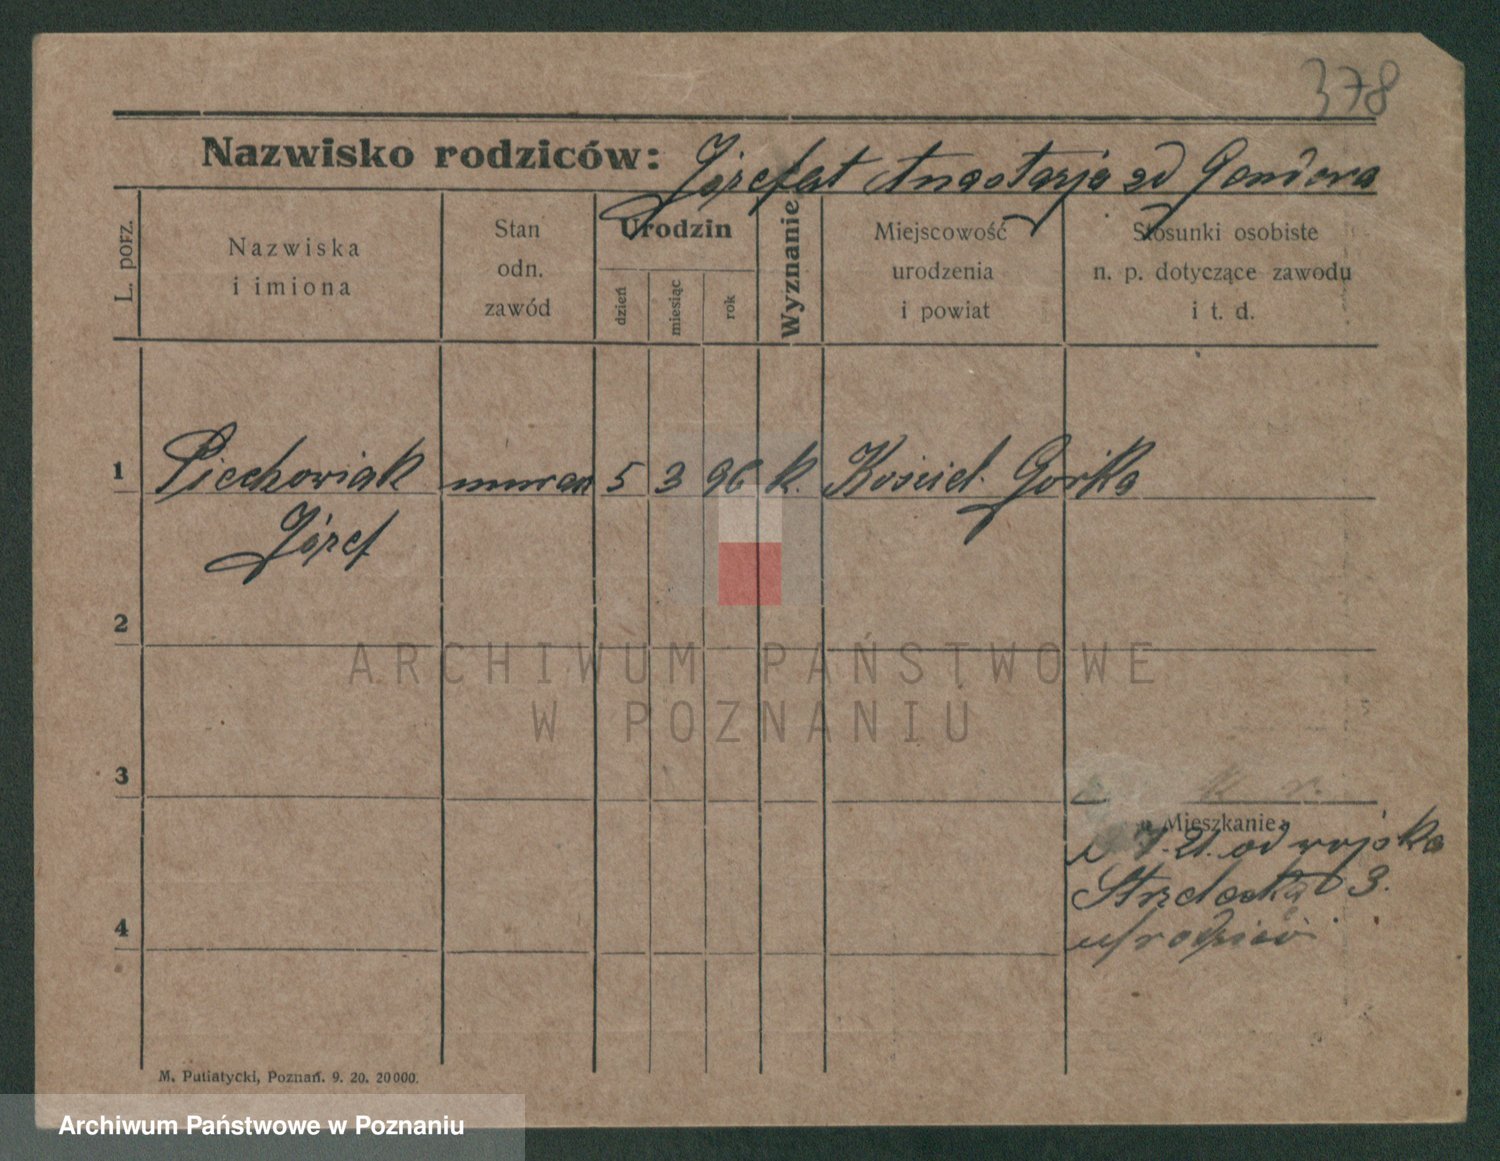 378
Nazwisko rodziców: Józefat Anastazja zd Gondora
L. porz.
Nazwiska i imiona
Stan odn. zawód
Urodzin
dzień
miesiąc
rok
Wyznanie
Miejscowość urodzenia i powiat
Stosunki osobiste n. p. dotyczące zawodu i t. d.
1 Piechowiak murarz 5 3 96 k. Kościel. Gorka
Józef
2
ARCHIWUM PAŃSTWOWE
W POZNANIU
3
Mieszkanie:
7. 21. od wojska
Strzelecka 3.
u rodziców
4
M. Putiatycki, Poznań. 9. 20. 20000.
Archiwum Państwowe w Poznaniu